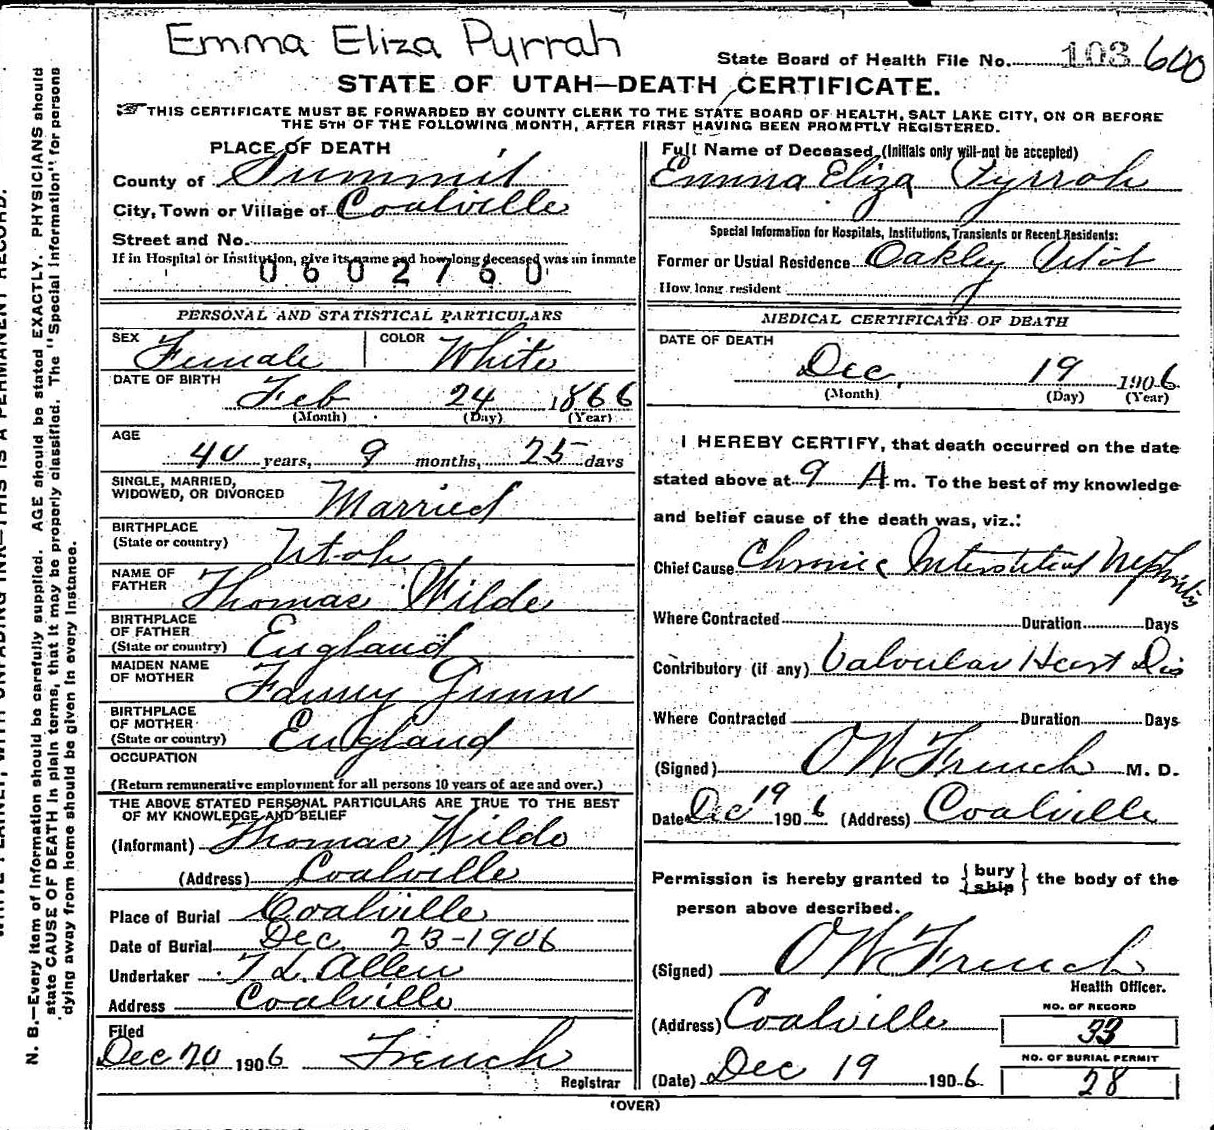 Emma Eliza Pyrrah
State Board of Health File No. 103 600
STATE OF UTAH—DEATH CERTIFICATE.
THIS CERTIFICATE MUST BE FORWARDED BY COUNTY CLERK TO THE STATE BOARD OF HEALTH, SALT LAKE CITY, ON OR BEFORE
THE 5TH OF THE FOLLOWING MONTH, AFTER FIRST HAVING BEEN PROMPTLY REGISTERED.
PLACE OF DEATH
County of Summit
City, Town or Village of Coalville
Street and No.
If in Hospital or Institution, give its name and how long deceased was an inmate
0602760
PERSONAL AND STATISTICAL PARTICULARS
SEX Female COLOR White
DATE OF BIRTH Feb 24 1866
(Month) (Day) (Year)
AGE
40 years, 9 months, 25 days
SINGLE, MARRIED,
WIDOWED, OR DIVORCED Married
BIRTHPLACE
(State or country) Utah
NAME OF
FATHER Thomas Wilde
BIRTHPLACE
OF FATHER
(State or country) England
MAIDEN NAME
OF MOTHER Fanny Gunn
BIRTHPLACE
OF MOTHER
(State or country) England
OCCUPATION
(Return remunerative employment for all persons 10 years of age and over.)
THE ABOVE STATED PERSONAL PARTICULARS ARE TRUE TO THE BEST
OF MY KNOWLEDGE AND BELIEF
(Informant) Thomas Wilde
(Address) Coalville
Place of Burial Coalville
Date of Burial Dec. 23-1906
Undertaker T L Allen
Address Coalville
Filed
Dec 20 1906 French
Registrar
Full Name of Deceased (Initials only will not be accepted)
Emma Eliza Pyrrah
Special Information for Hospitals, Institutions, Transients or Recent Residents:
Former or Usual Residence Oakley Utah
How long resident
MEDICAL CERTIFICATE OF DEATH
DATE OF DEATH
Dec, 19 1906
(Month) (Day) (Year)
I HEREBY CERTIFY, that death occurred on the date
stated above at 9 A m. To the best of my knowledge
and belief cause of the death was, viz.:
Chief Cause Chronic Interstitial Nephritis
Where Contracted Duration Days
Contributory (if any) Valvular Heart Dis
Where Contracted Duration Days
(Signed) O W French M. D.
Date Dec 19 1906 (Address) Coalville
Permission is hereby granted to {bury
ship} the body of the
person above described.
(Signed) O W French
Health Officer.
(Address) Coalville
NO. OF RECORD
33
NO. OF BURIAL PERMIT
28
(Date) Dec 19 1906
(OVER)
N. B.—Every item of information should be carefully supplied. AGE should be stated EXACTLY. PHYSICIANS should
state CAUSE OF DEATH in plain terms, that it may be properly classified. The "Special Information" for persons
dying away from home should be given in every instance.
WRITE PLAINLY, WITH UNFADING INK—THIS IS A PERMANENT RECORD.